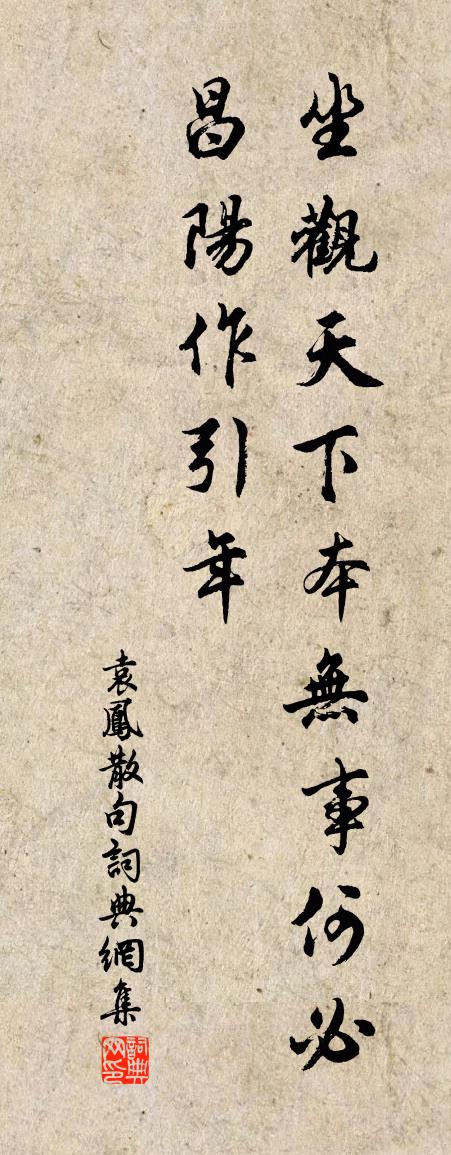 坐觀天下本無事何必
昌陽作引年
袁鳳散句詞典網集
詞典網印